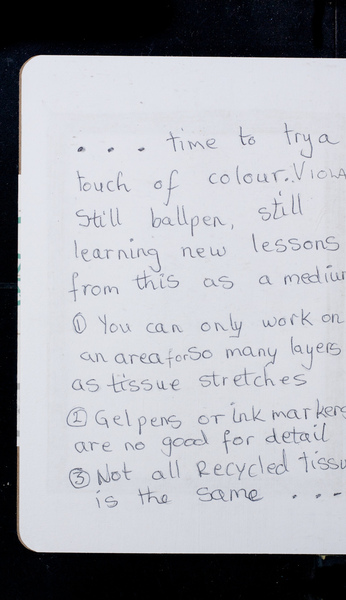 . . . time to try a
touch of colour. VIOLA
Still ballpen, still
learning new lessons
from this as a mediu
① You can only work on
an area for so many layers
as tissue stretches
② Gel pens or ink markers
are no good for detail
③ Not all Recycled tissu
is the same . . .